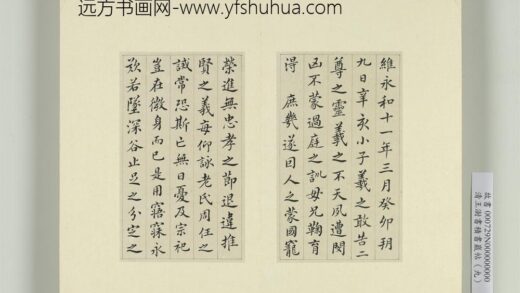 远方书画网-www.yfshuhua.com
維永和十一年三月癸卯朔
九日辛亥小子羲之敢告二
尊之靈羲之不天夙遭閔
凶不蒙過庭之訓母兄鞠育
得 庶幾遂因人之蒙國寵
榮進無忠孝之節退違推
賢之義每仰詠老氏周任之
誡常恐斯亡無日憂及宗祀
豈在微身而已是用寤寐永
歎若墜深谷止足之分定之
故書 000729N000000000
清王澍書積書巖帖(九)